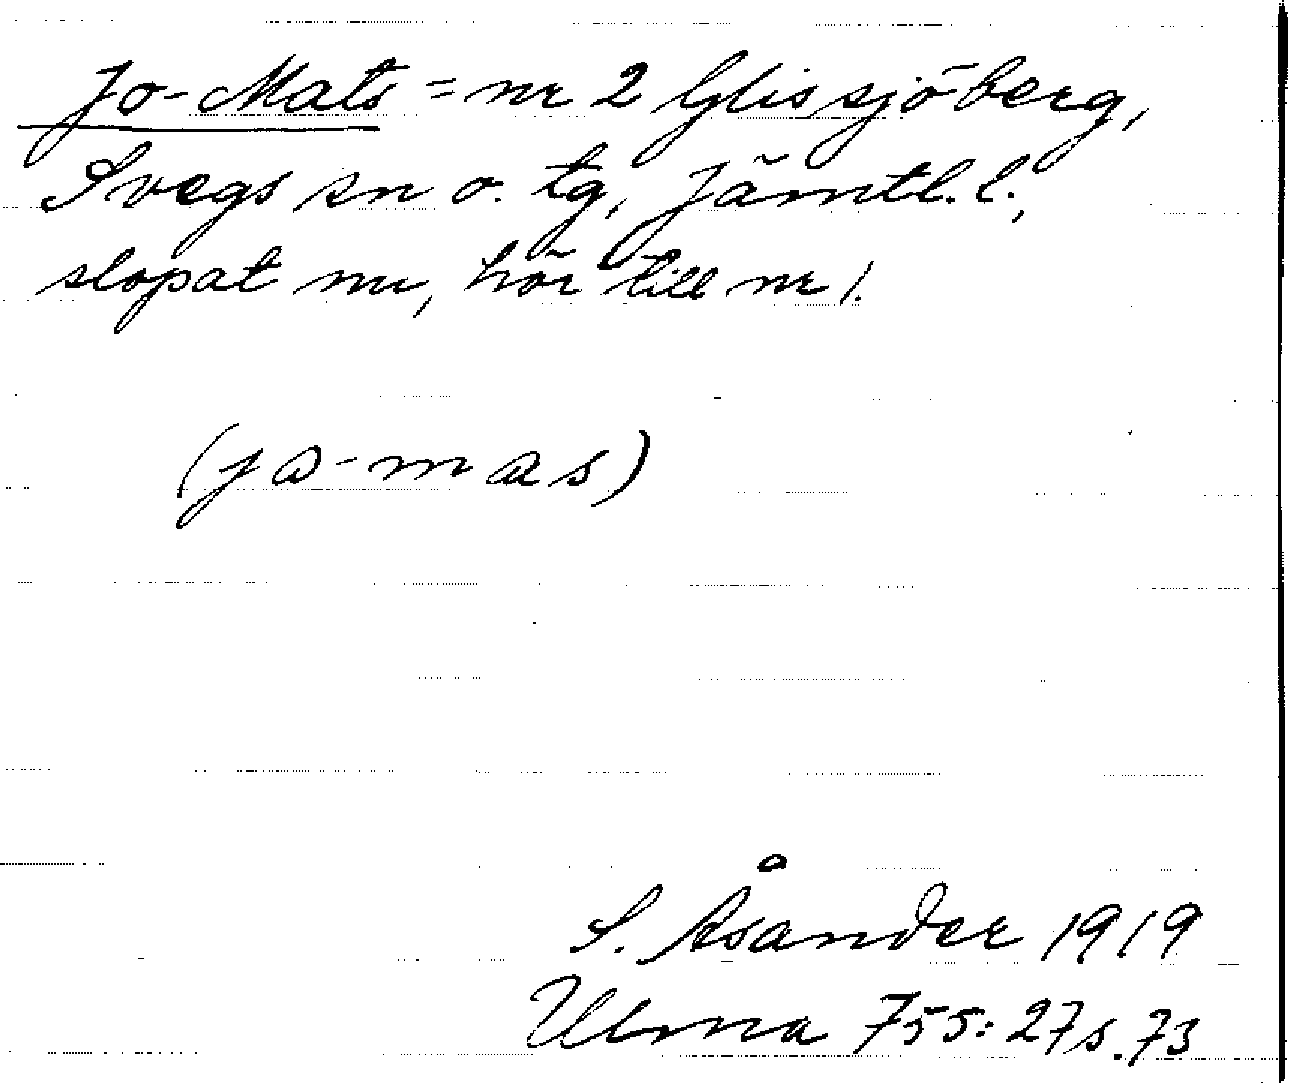 Jo-Mats = nr 2 Glissjöberg,
Svegs sn o. tg, Jämtl. l.,
slopat nr, hör till nr 1.
(jo-mas)
S. Åsander 1919
Ulma 755:27 s. 73